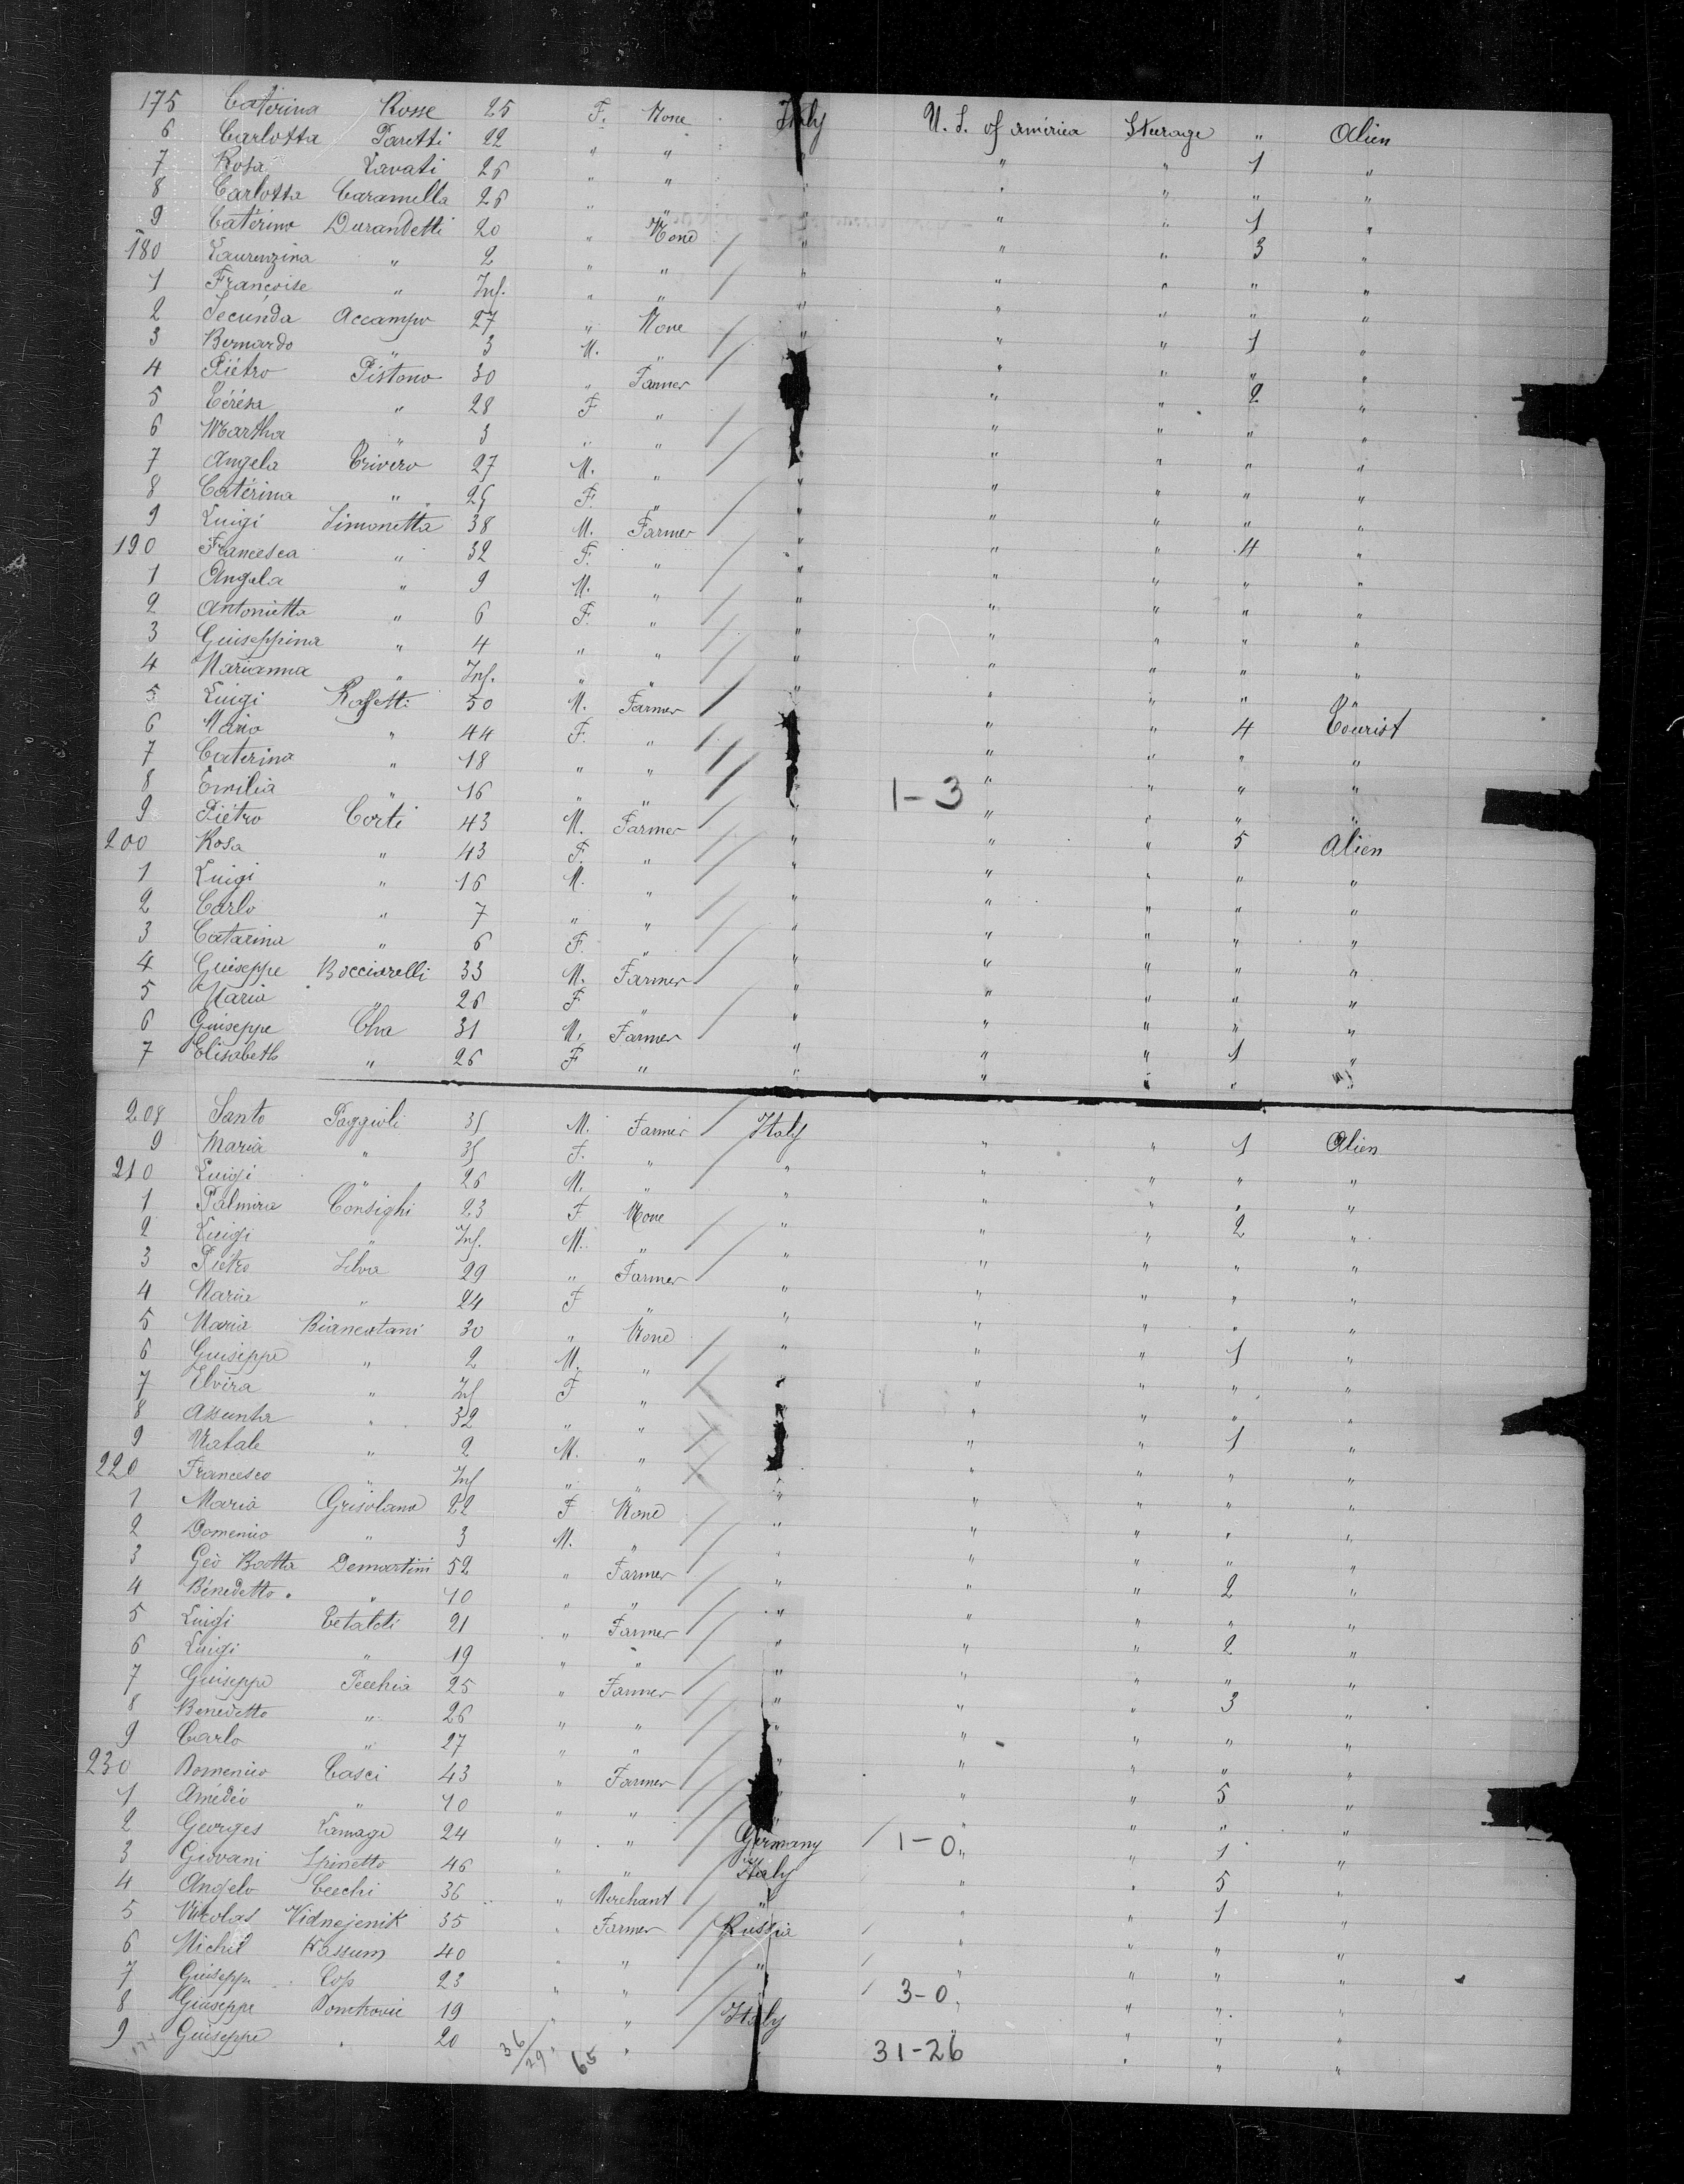 175 Caterina Rosse 25 F. None Italy U. S. of america Steerage " Alien
6 Carlotta Paretti 22 " " " " 1 "
7 Rosa Lavati 26 " " " " " " "
8 Carlotta Caramella 26 " " " " " 1 "
9 Caterina Durandetti 20 " None " " " 3 "
180 Laurenzina " 2 " " " " " " "
1 Françoise " Inf. " " " " " " "
2 Secunda Accampo 27 " None " " " 1 "
3 Bernardo " 3 M. " " " " " "
4 Piétro Pistono 30 " Farmer " " 2 "
5 Térésa " 28 F. " " " " "
6 Martha " 3 " " " " " "
7 Angela Trivero 27 M. " " " " " "
8 Catérina " 25 F. " " " " " "
9 Luigi Simonetta 38 M. Farmer " " " 4 "
190 Francesca " 32 F. " " " " " "
1 Angela " 9 M. " " " " " "
2 Antonietta " 6 F. " " " " " "
3 Guiseppina " 4 " " " " " " "
4 Marianna " Inf. " " " " " " "
5 Luigi Rossetti 50 M. Farmer " " 4 Tourist
6 Maria " 44 F. " " " " "
7 Caterina " 18 " " " " " "
8 Emilia " 16 " " 1-3 " " " "
9 Piétro Corti 43 M. Farmer " " " 5 Alien
200 Rosa " 43 F. " " " " " "
1 Luigi " 16 M. " " " " " "
2 Carlo " 7 " " " " " " "
3 Catarina " 6 F. " " " " " "
4 Guiseppe Bocciarelli 33 M. Farmer " " " " "
5 Maria " 26 F " " " " " "
6 Guiseppe Cha 31 M. Farmer " " " 1 "
7 Elisabeth " 26 F " " " " " "
208 Santo Poggioli 35 M. Farmer Italy " " 1 Alien
9 Maria " 35 F. " " " " " "
210 Luigi " 26 M. " " " " " "
1 Palmira Consighi 23 F None " " " 2 "
2 Luigi " Inf. M. " " " " " "
3 Piétro Selva 29 " Farmer " " " " "
4 Maria " 24 F " " " " " "
5 Maria Biancatani 30 " None " " " 1 "
6 Guiseppe " 2 M. " " " " " "
7 Elvira " Inf F " " " " " "
8 Assunta " 32 " " " " 1 "
9 Natale " 2 M. " " " " "
220 Francesco " Inf " " " " " " "
1 Maria Grisolano 22 F None " " " " "
2 Domenico " 3 M. " " " " " "
3 Geo Batta Demartini 52 " Farmer " " " 2 "
4 Bénedetto " 10 " " " " " " "
5 Luigi 21 " Farmer " " " 2 "
6 Luigi " 19 " " " " " " "
7 Guiseppe Pecchia 25 " Farmer " " " 3 "
8 Benedetto " 26 " " " " " " "
9 Carlo " 27 " " " " " "
230 Domenico Casci 43 " Farmer " " 5 "
1 Amédéo " 10 " " " " " "
2 Georges Lamage 24 " " Germany 1-0 " " 1 "
3 Giovani Spinetto 46 " " Italy " " 5 "
4 Angelo Cecchi 36 " Merchant " " " 1 "
5 Nicolas Vidnejenik 35 " Farmer Russia " " " "
6 Michel Wassum 40 " " " " " " "
7 Guiseppe Cop 23 " " 3-0 " " " "
8 Guiseppe 19 " " Italy " " " "
9 Guiseppe " 20 " " 31-26 " " "
36/29 65